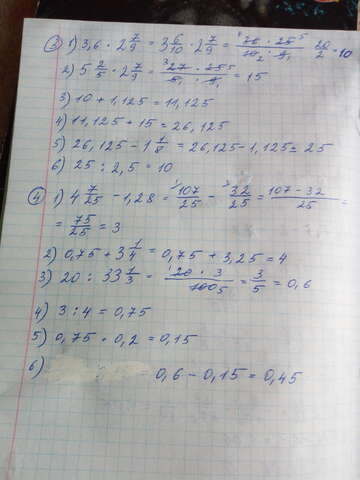 ③ 1) 3,6 · 2 7/9 = 3 6/10 · 2 7/9 = 36 · 25/10 · 9 = 20/2 = 10
2) 5 2/5 · 2 7/9 = 27 · 25/5 · 9 = 15
3) 10 + 1,125 = 11,125
4) 11,125 + 15 = 26,125
5) 26,125 - 1 1/8 = 26,125 - 1,125 = 25
6) 25 : 2,5 = 10
④ 1) 4 7/25 - 1,28 = 107/25 - 32/25 = 107 - 32/25 =
= 75/25 = 3
2) 0,75 + 3 1/4 = 0,75 + 3,25 = 4
3) 20 : 33 1/3 = 20 · 3/100 = 3/5 = 0,6
4) 3 : 4 = 0,75
5) 0,75 · 0,2 = 0,15
6) = 0,6 - 0,15 = 0,45